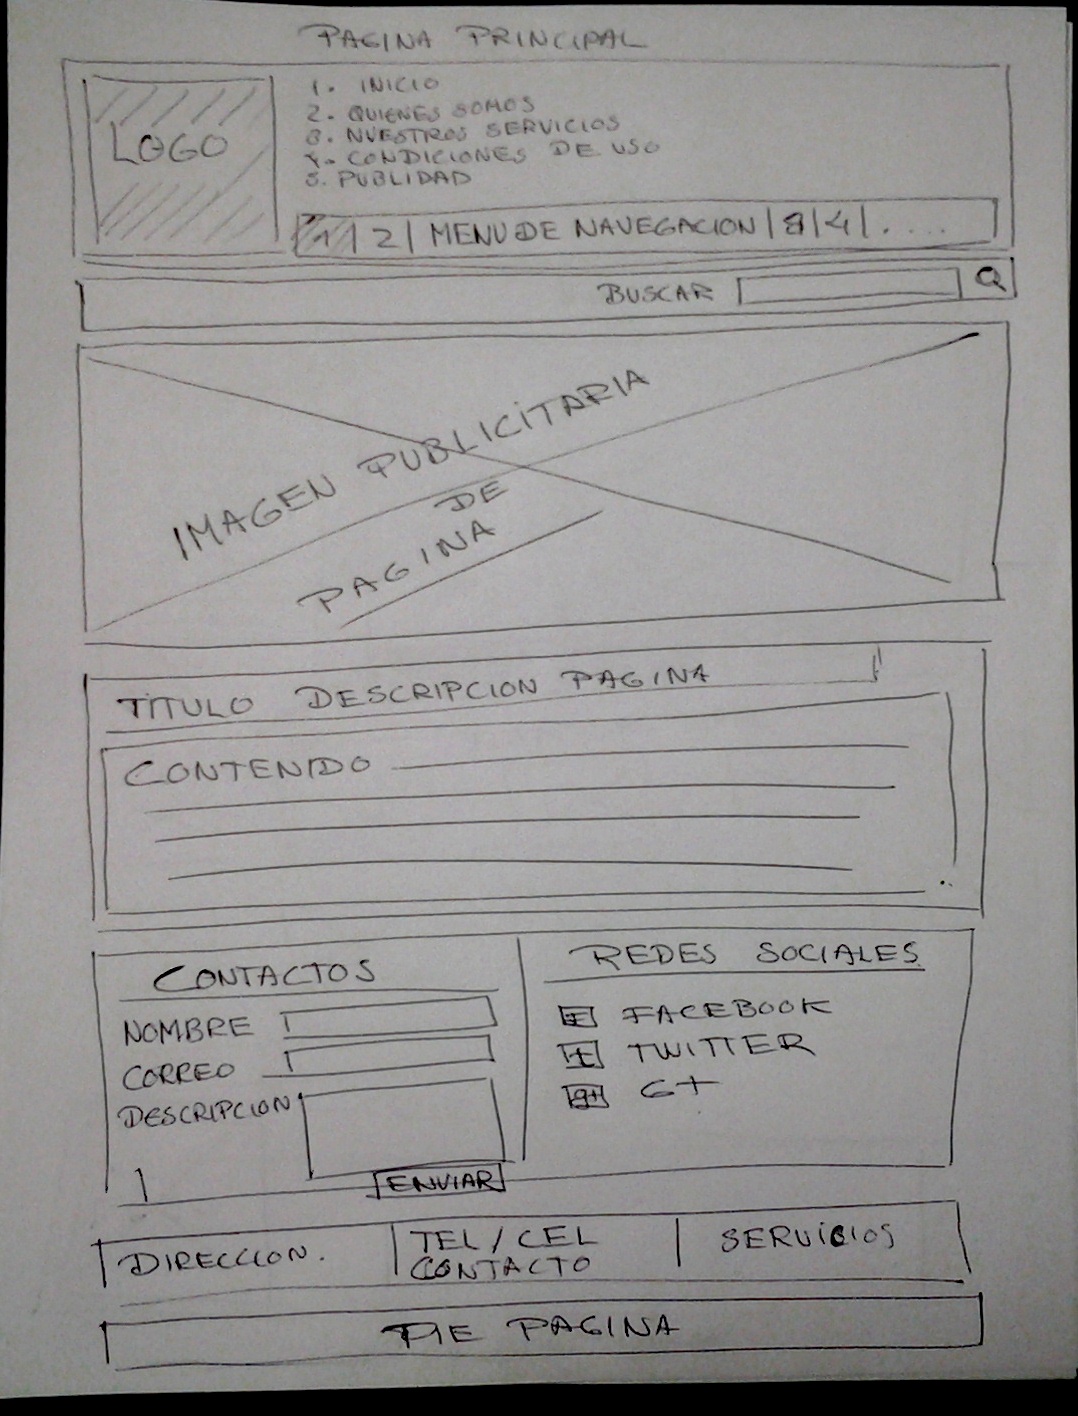 PAGINA PRINCIPAL
LOGO
1. INICIO
2. QUIENES SOMOS
3. NUESTROS SERVICIOS
4. CONDICIONES DE USO
5. PUBLIDAD
1 | 2 | MENU DE NAVEGACION | 3 | 4 | . . . .
BUSCAR
IMAGEN PUBLICITARIA
DE
PAGINA
TITULO DESCRIPCION PAGINA
CONTENIDO
CONTACTOS
NOMBRE
CORREO
DESCRIPCION
ENVIAR
REDES SOCIALES
F FACEBOOK
t TWITTER
g+ G+
DIRECCION.
TEL/CEL
CONTACTO
SERVICIOS
PIE PAGINA